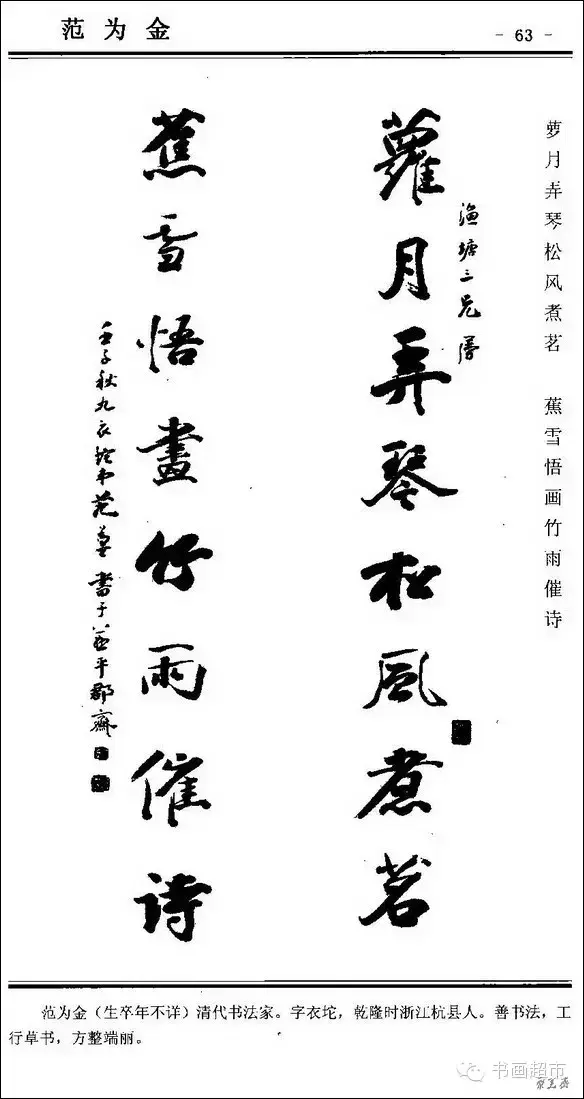 范为金
- 63 -
萝月弄琴松风煮茗 蕉雪悟画竹雨催诗
渔塘三兄
蘿月弄琴松風煮茗
蕉雪悟畫竹雨催詩
壬子秋九衣
書于
平郡齋
范为金（生卒年不详）清代书法家。字衣坨，乾隆时浙江杭县人。善书法，工
行草书，方整端丽。
书画超市